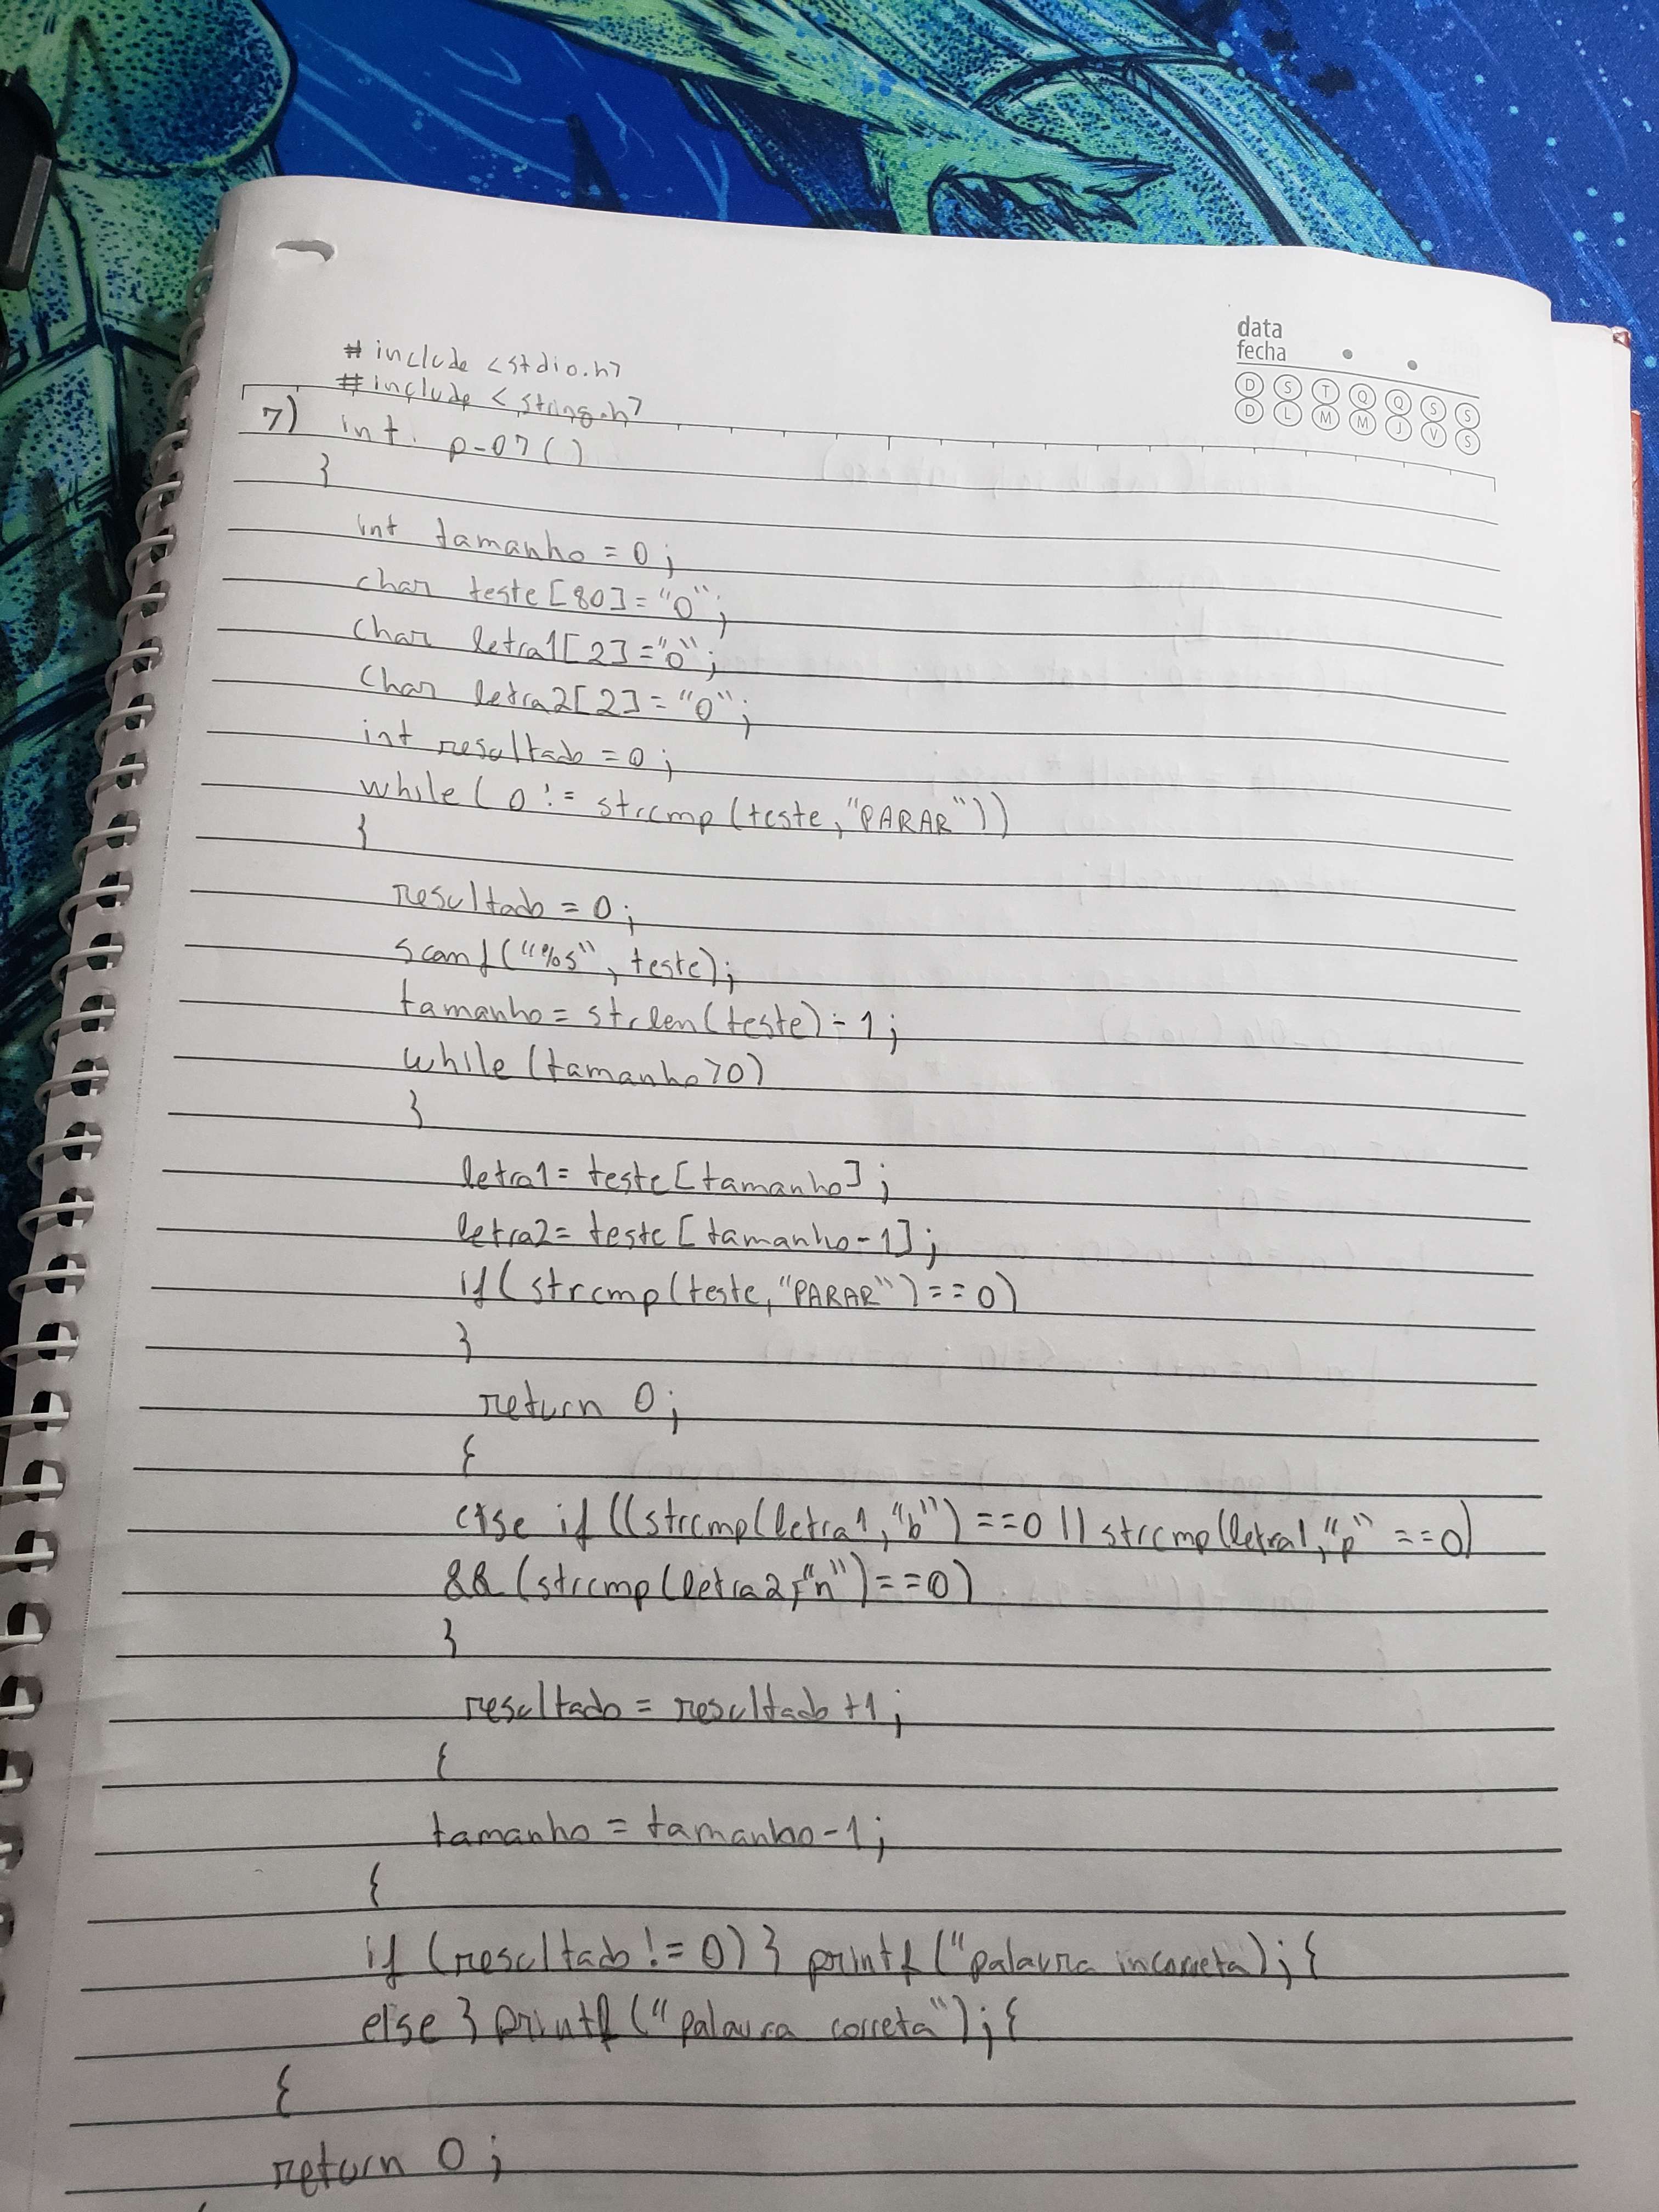 data
fecha
D S T Q Q S S
D L M M J V S
# include <stdio.h>
# include <string.h>
7) int p-07()
}
int tamanho = 0;
char teste[80]="0";
char letra1[2]="0";
char letra2[2]="0";
int resultado = 0;
while( 0 != strcmp(teste,"PARAR"))
}
resultado = 0;
scanf("%s", teste);
tamanho = strlen(teste)-1;
while (tamanho>0)
}
letra1= teste[tamanho];
letra2= teste[tamanho-1];
if(strcmp(teste,"PARAR")==0)
}
return 0;
{
else if((strcmp(letra1,"b")==0 || strcmp(letra1,"p" ==0)
&& (strcmp(letra2,"n")==0)
}
resultado = resultado +1;
{
tamanho = tamanho-1;
{
if (resultado != 0) } printf("palavra incorreta); {
else } printf("palavra correta"); {
{
return 0;